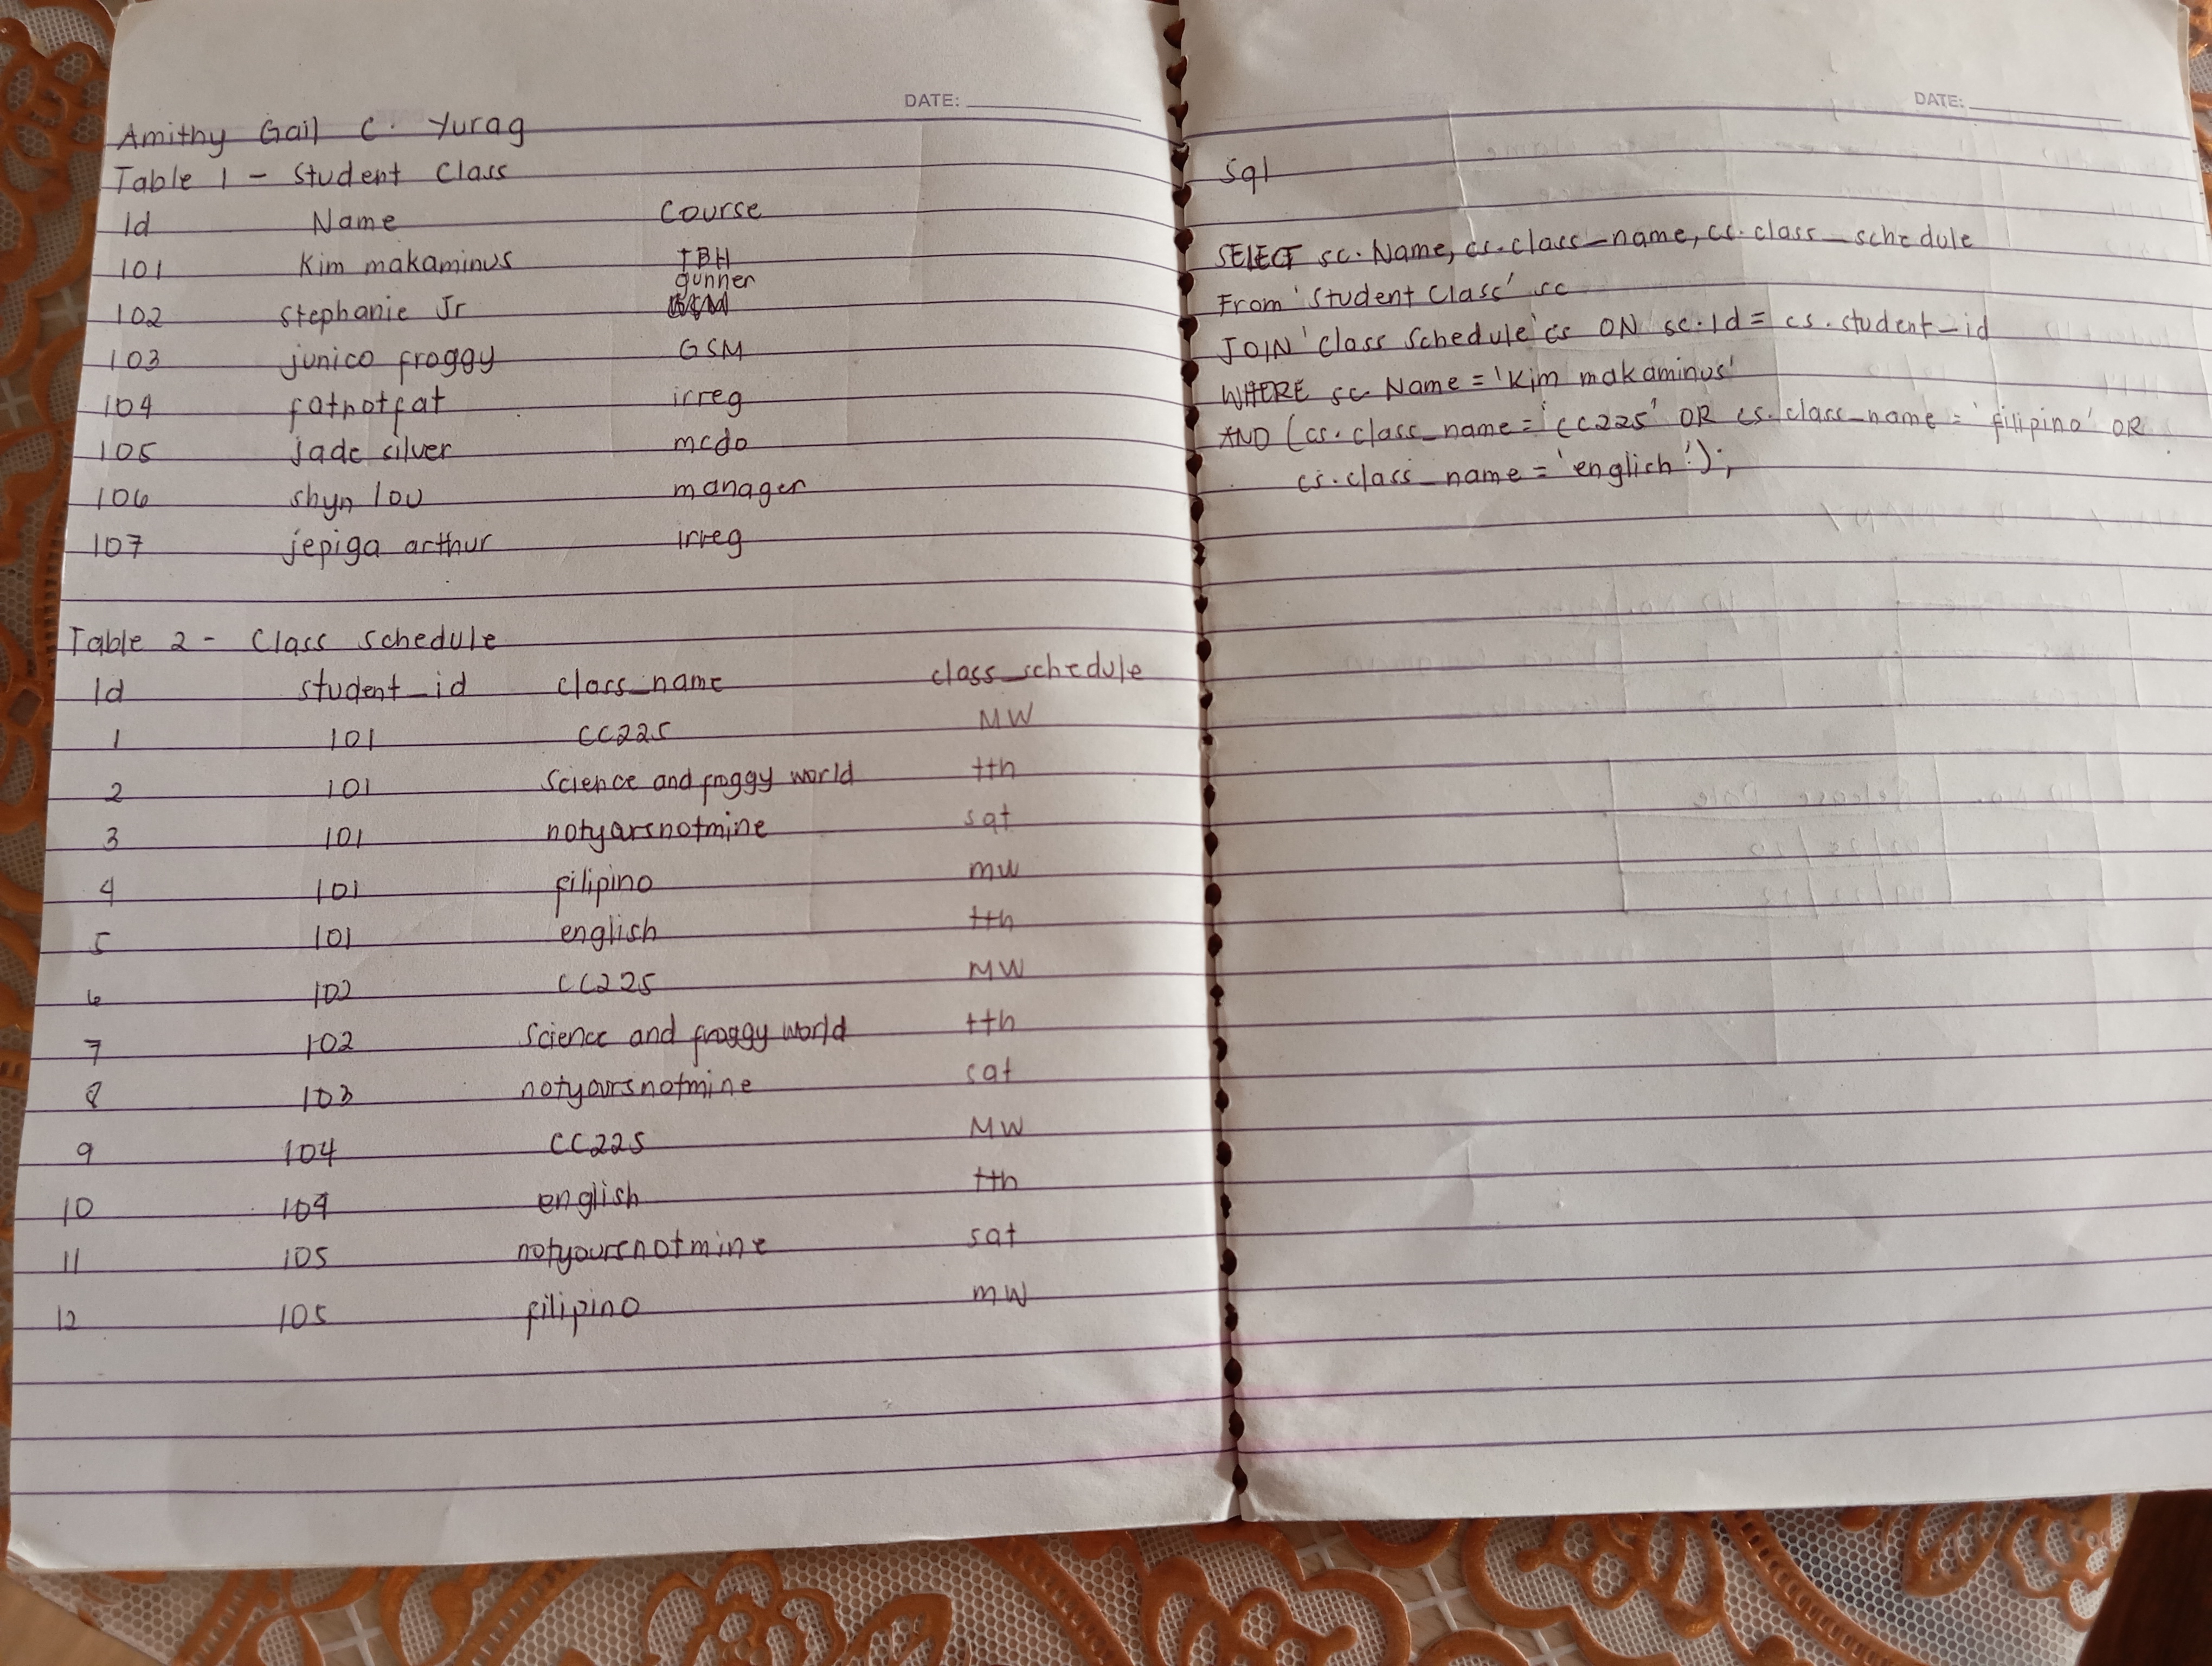 DATE:
Amithy Gail C. Yurag
Table 1 - Student Class
Id Name Course
101 Kim makaminus TBH
102 stephanie Jr gunner
103 junico froggy GSM
104 fatnotfat irreg
105 jade silver mcdo
106 shyn lou manager
107 jepiga arthur irreg
Table 2 - Class schedule
Id student_id class_name class_schedule
1 101 CC225 MW
2 101 Science and froggy world tth
3 101 notyoursnotmine sat
4 101 filipino mw
5 101 english tth
6 102 CC225 MW
7 102 science and froggy world tth
8 103 notyoursnotmine sat
9 104 CC225 MW
10 104 english tth
11 105 notyoursnotmine sat
12 105 filipino mw
DATE:
Sql
SELECT sc.Name, cs.class_name, cs.class_schedule
From 'Student Class' sc
JOIN 'Class Schedule' cs ON sc.Id = cs.student_id
WHERE sc.Name = 'Kim makaminus'
AND (cs.class_name = 'CC225' OR cs.class_name = 'filipino' OR
cs.class_name = 'english');